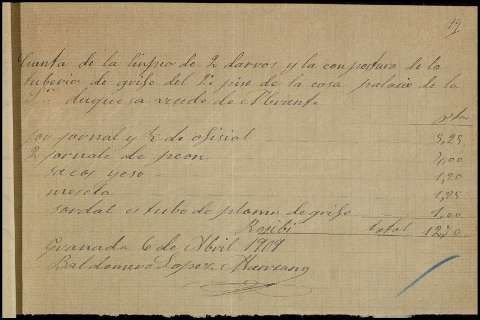 19
Cuenta de la linpia de 2 darros y la conpostura de la
tuberia de grifo del 2º piso de la casa palacio de la
duquesa viuda de Abrante
ptas
por jornal y ½ de oficial 5,25
2 jornale de peon 5,00
sacos yeso 1,20
mescla 1,25
soldal es tubo de plomo de grifo 1,00
Recibi total
Granada 6 de Abril 1909
Baldomero Lopez